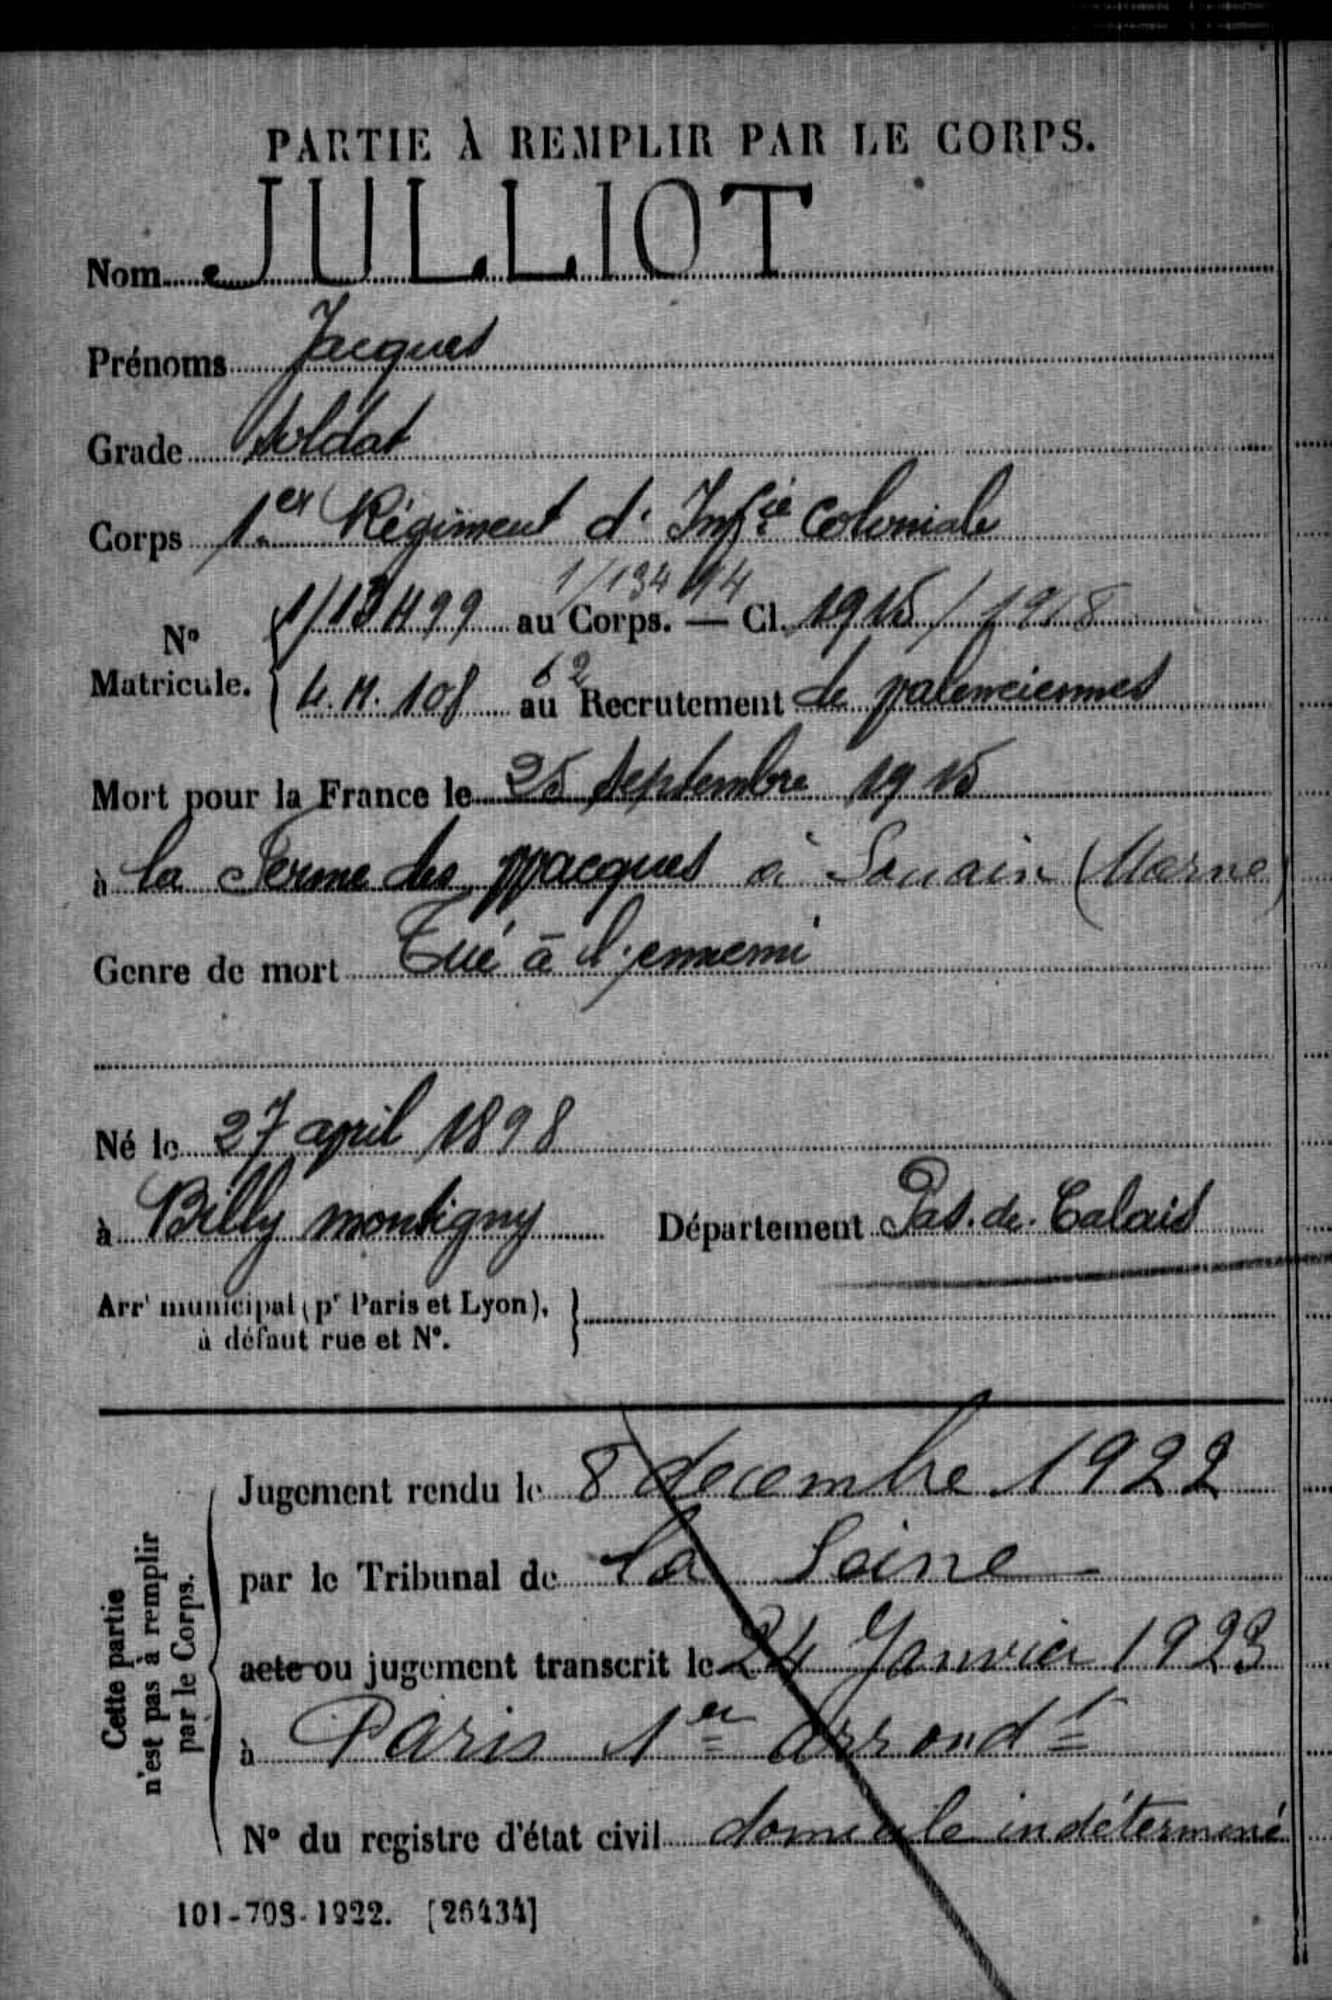 PARTIE À REMPLIR PAR LE CORPS.
Nom JULLIOT
Prénoms Jacques
Grade Soldat
Corps 1.er Régiment d'Inf.ie Coloniale
1/13499 au Corps. — Cl. 1915 / 1918
N° Matricule.
L.M. 108 au Recrutement de Valenciennes
Mort pour la France le 25 Septembre 1915
à la Ferme des Wacques à Souain (Marne)
Genre de mort Tué à l'ennemi
Né le 27 april 1898
à Billy montigny Département Pas.de.Calais
Arr' municipal (pr Paris et Lyon),
à défaut rue et N°.
Jugement rendu le 8 decembre 1922
par le Tribunal de la Seine
acte ou jugement transcrit le 24 Janvier 1923
à Paris 1er arrondt
N° du registre d'état civil domicile indéterminé
Cette partie
n'est pas à remplir
par le Corps.
101-708-1922. [26434]